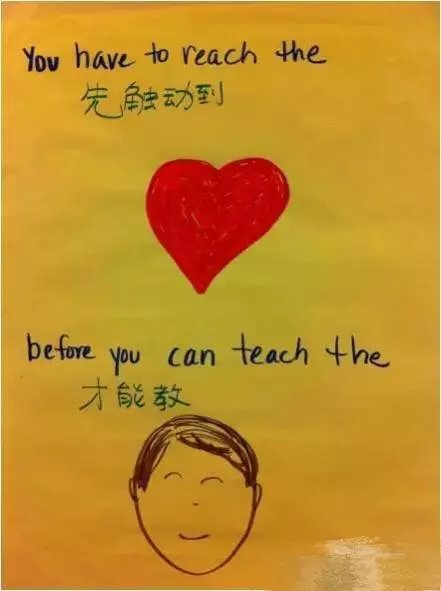 You have to reach the
先触动到
before you can teach the
才能教